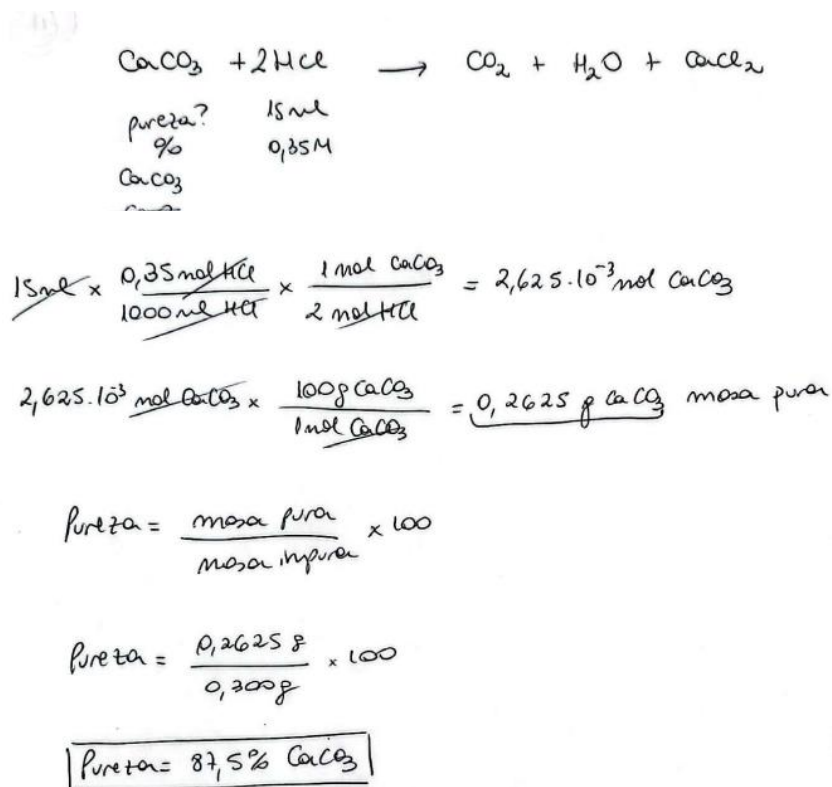 CaCO₃ + 2HCl → CO₂ + H₂O + CaCl₂
pureza? 15ml
% 0,35M
CaCO₃
15ml × 0,35mol HCl / 1000 ml HCl × 1 mol CaCO₃ / 2 mol HCl = 2,625·10⁻³ mol CaCO₃
2,625·10⁻³ mol CaCO₃ × 100g CaCO₃ / 1mol CaCO₃ = 0,2625 g CaCO₃ masa pura
Pureza = masa pura / masa impura × 100
Pureza = 0,2625 g / 0,300g × 100
Pureza = 87,5% CaCO₃